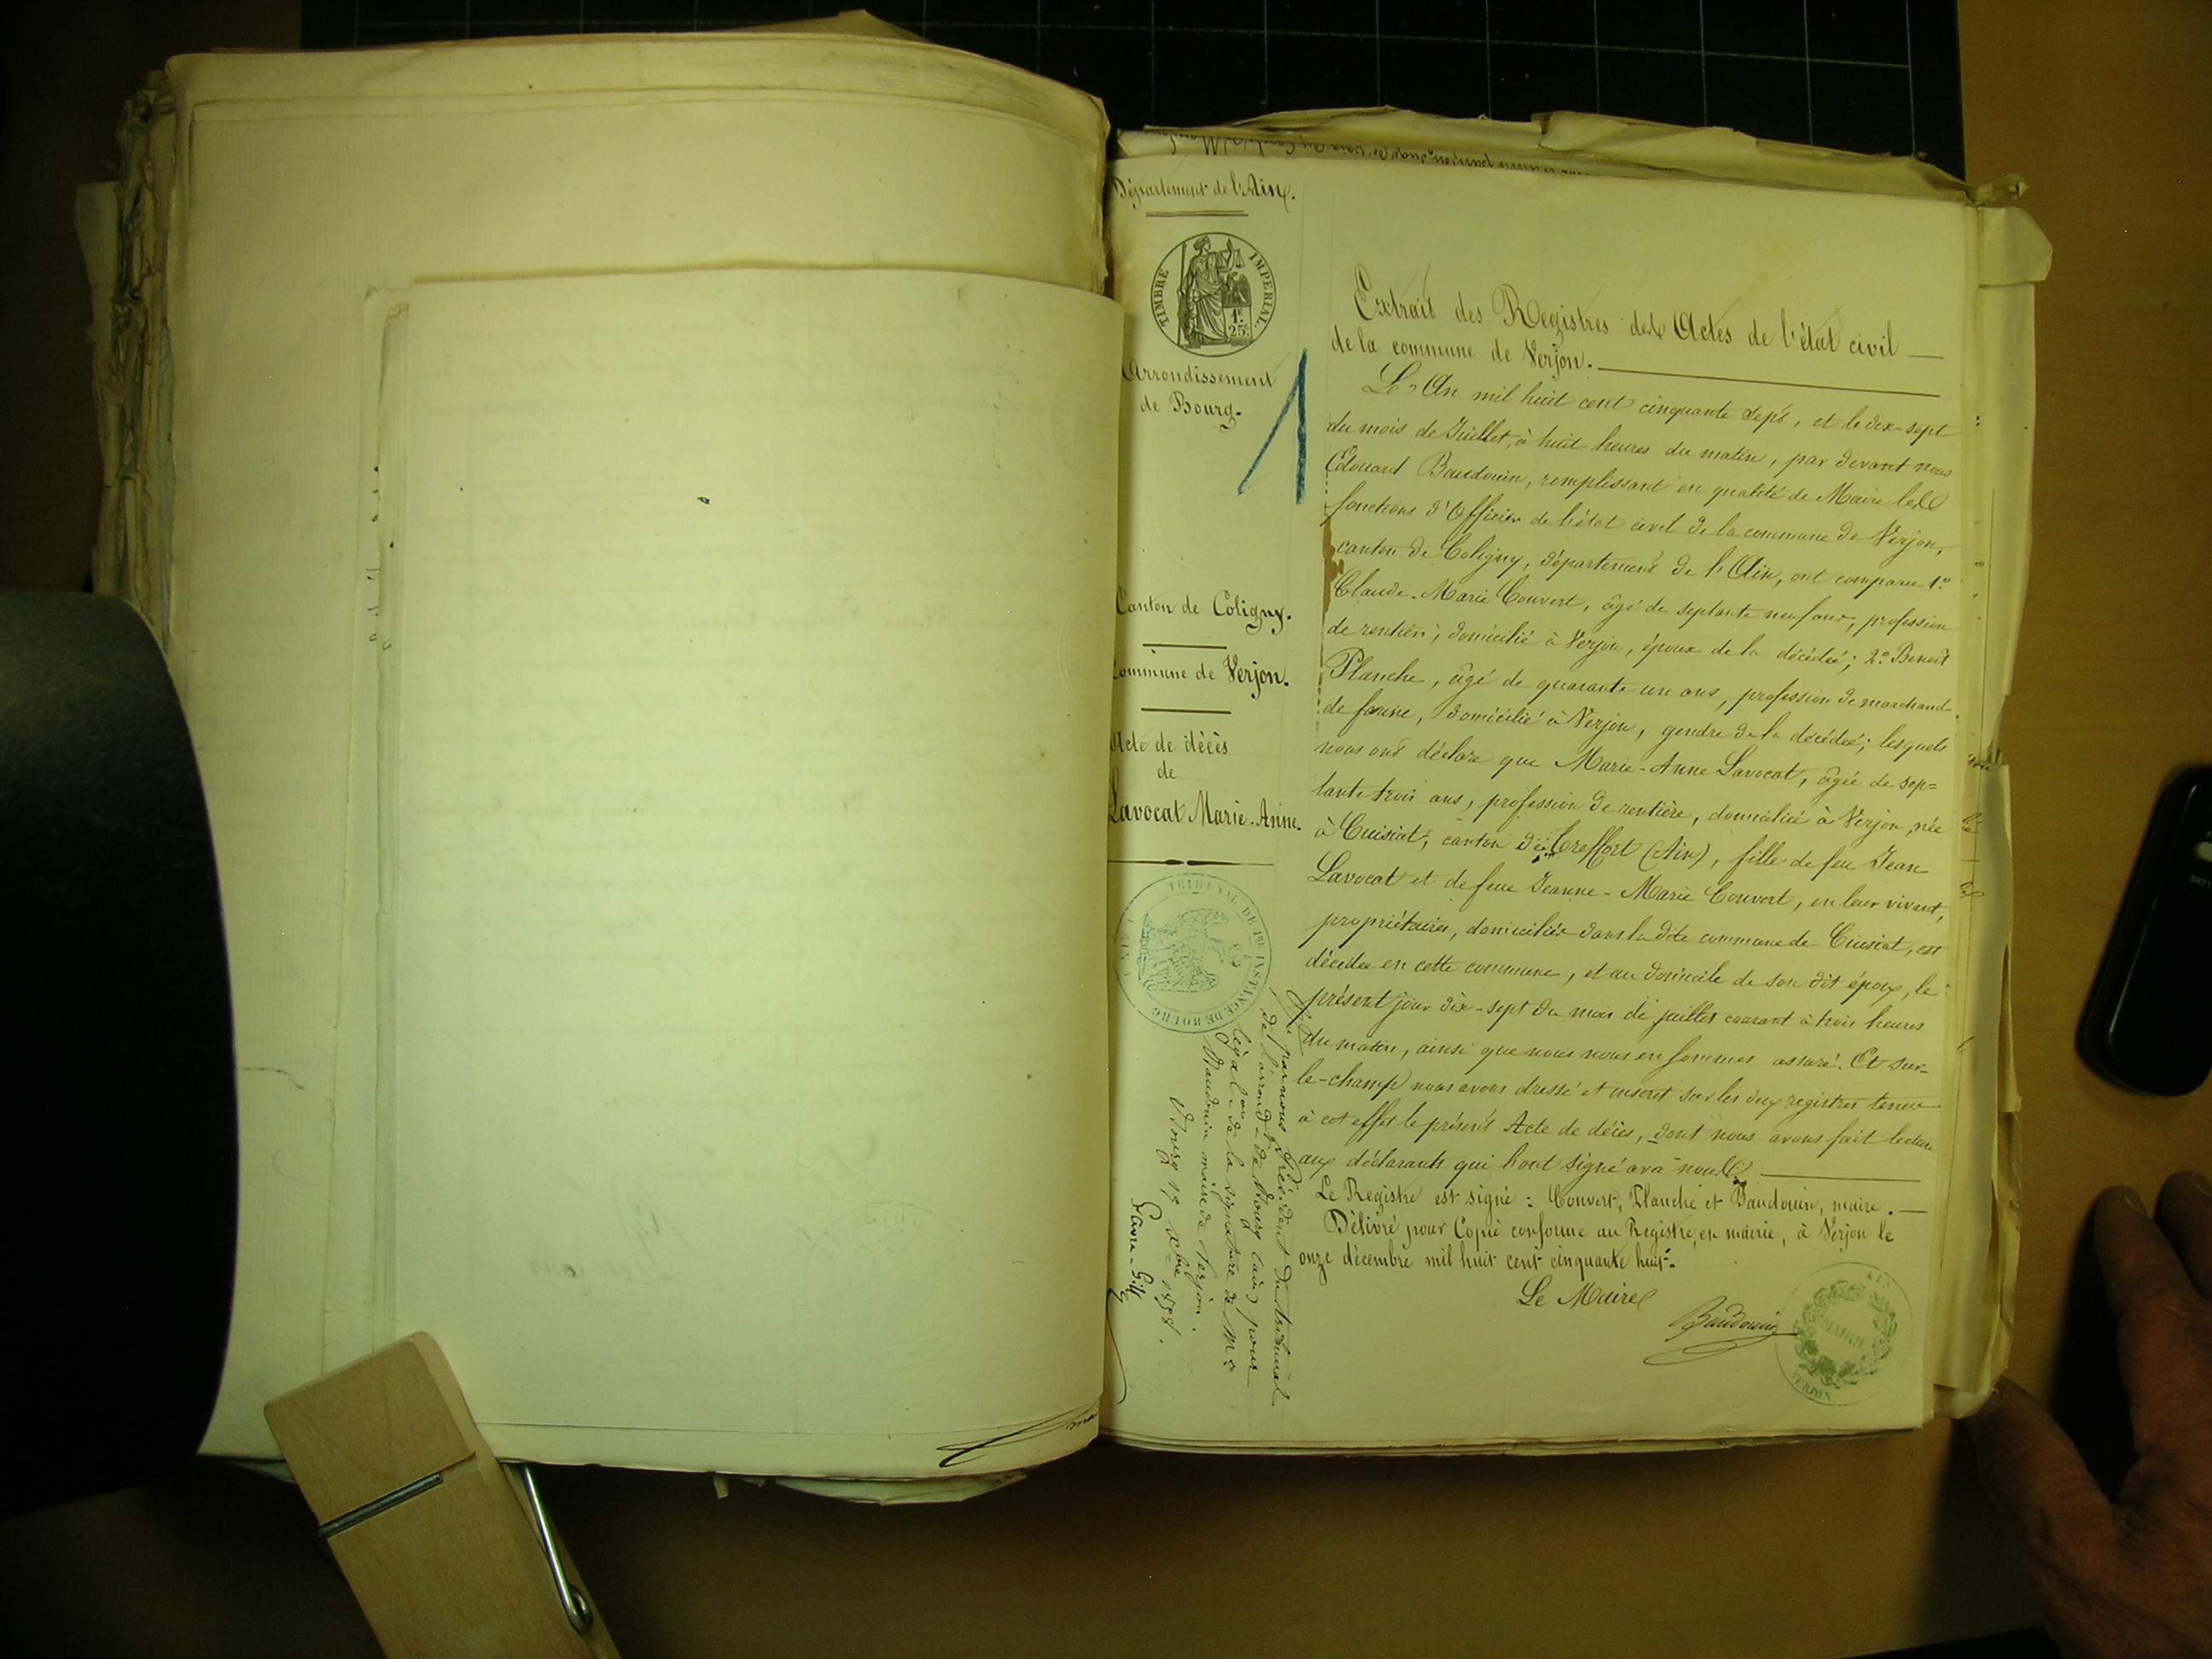 Département de l'Ain.
TIMBRE IMPERIAL
1f.
25c.
Arrondissement
de Bourg.
1
Canton de Coligny.
Commune de Verjon.
Acte de décès
de
Lavocat Marie-Anne.
TRIBUNAL DE 1RE INSTANCE DE BOURG
Vu par nous Président du tribunal
de l'arrond-t de Bourg (ain) pour
légal-on de la signature de Mr
Baudouin maire de Verjon.
Bourg 19 Xbre 1858.
Extrait des Registres des Actes de l'état civil
de la commune de Verjon.
L'An mil huit cent cinquante sept, et le dix-sept
du mois de Juillet, à huit heures du matin, par devant nous
Edouard Baudouin, remplissant en qualité de Maire les
fonctions d'Officier de l'état civil de la commune de Verjon,
canton de Coligny, département de l'Ain, ont comparu 1.o
Claude-Marie Convert, âgé de septante neuf ans, profession
de rentier, domicilié à Verjon, époux de la décédée; 2.o Benoit
Planche, âgé de quarante un ans, profession de marchand
de farine, domicilié à Verjon, gendre de la décédée; lesquels
nous ont déclaré que Marie-Anne Lavocat, âgée de sep=
tante trois ans, profession de rentière, domiciliée à Verjon, née
à Cuisiat, canton de Treffort (Ain), fille de feu Jean
Lavocat et de feue Jeanne-Marie Convert, en leur vivant,
propriétaires, domiciliés dans la dite commune de Cuisiat, est
décédée en cette commune, et au domicile de son dit époux, le
présent jour dix-sept du mois de juillet courant à trois heures
du matin, ainsi que nous nous en sommes assuré. Et sur-
le-champ nous avons dressé et inscrit sur les deux registres tenus
à cet effet le présent Acte de décès, dont nous avons fait lecture
aux déclarants qui l'ont signé avec nous.
Le Registre est signé : Convert, Planche et Baudouin, maire.
Délivré pour Copie conforme au Registre, en mairie, à Verjon le
onze décembre mil huit cent cinquante huit.
Le Maire
Baudouin
AIN
MAIRIE
VERJON